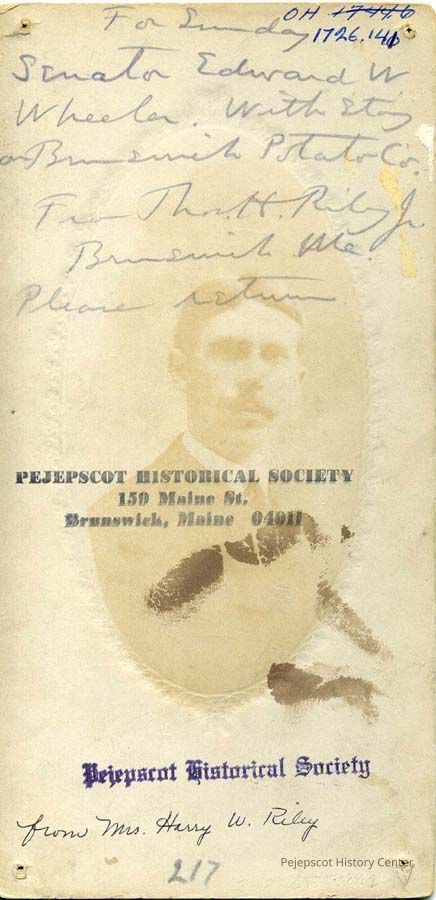 For Sunday
OH 17446
1726.146
Senator Edward W
Wheeler. With story
on Brunswick Potato Co.
From Thos. H. Riley Jr.
Brunswick Me.
Please return
PEJEPSCOT HISTORICAL SOCIETY
159 Maine St.
Brunswick, Maine 04011
Pejepscot Historical Society
from Mrs. Harry W. Riley
217
Pejepscot History Center